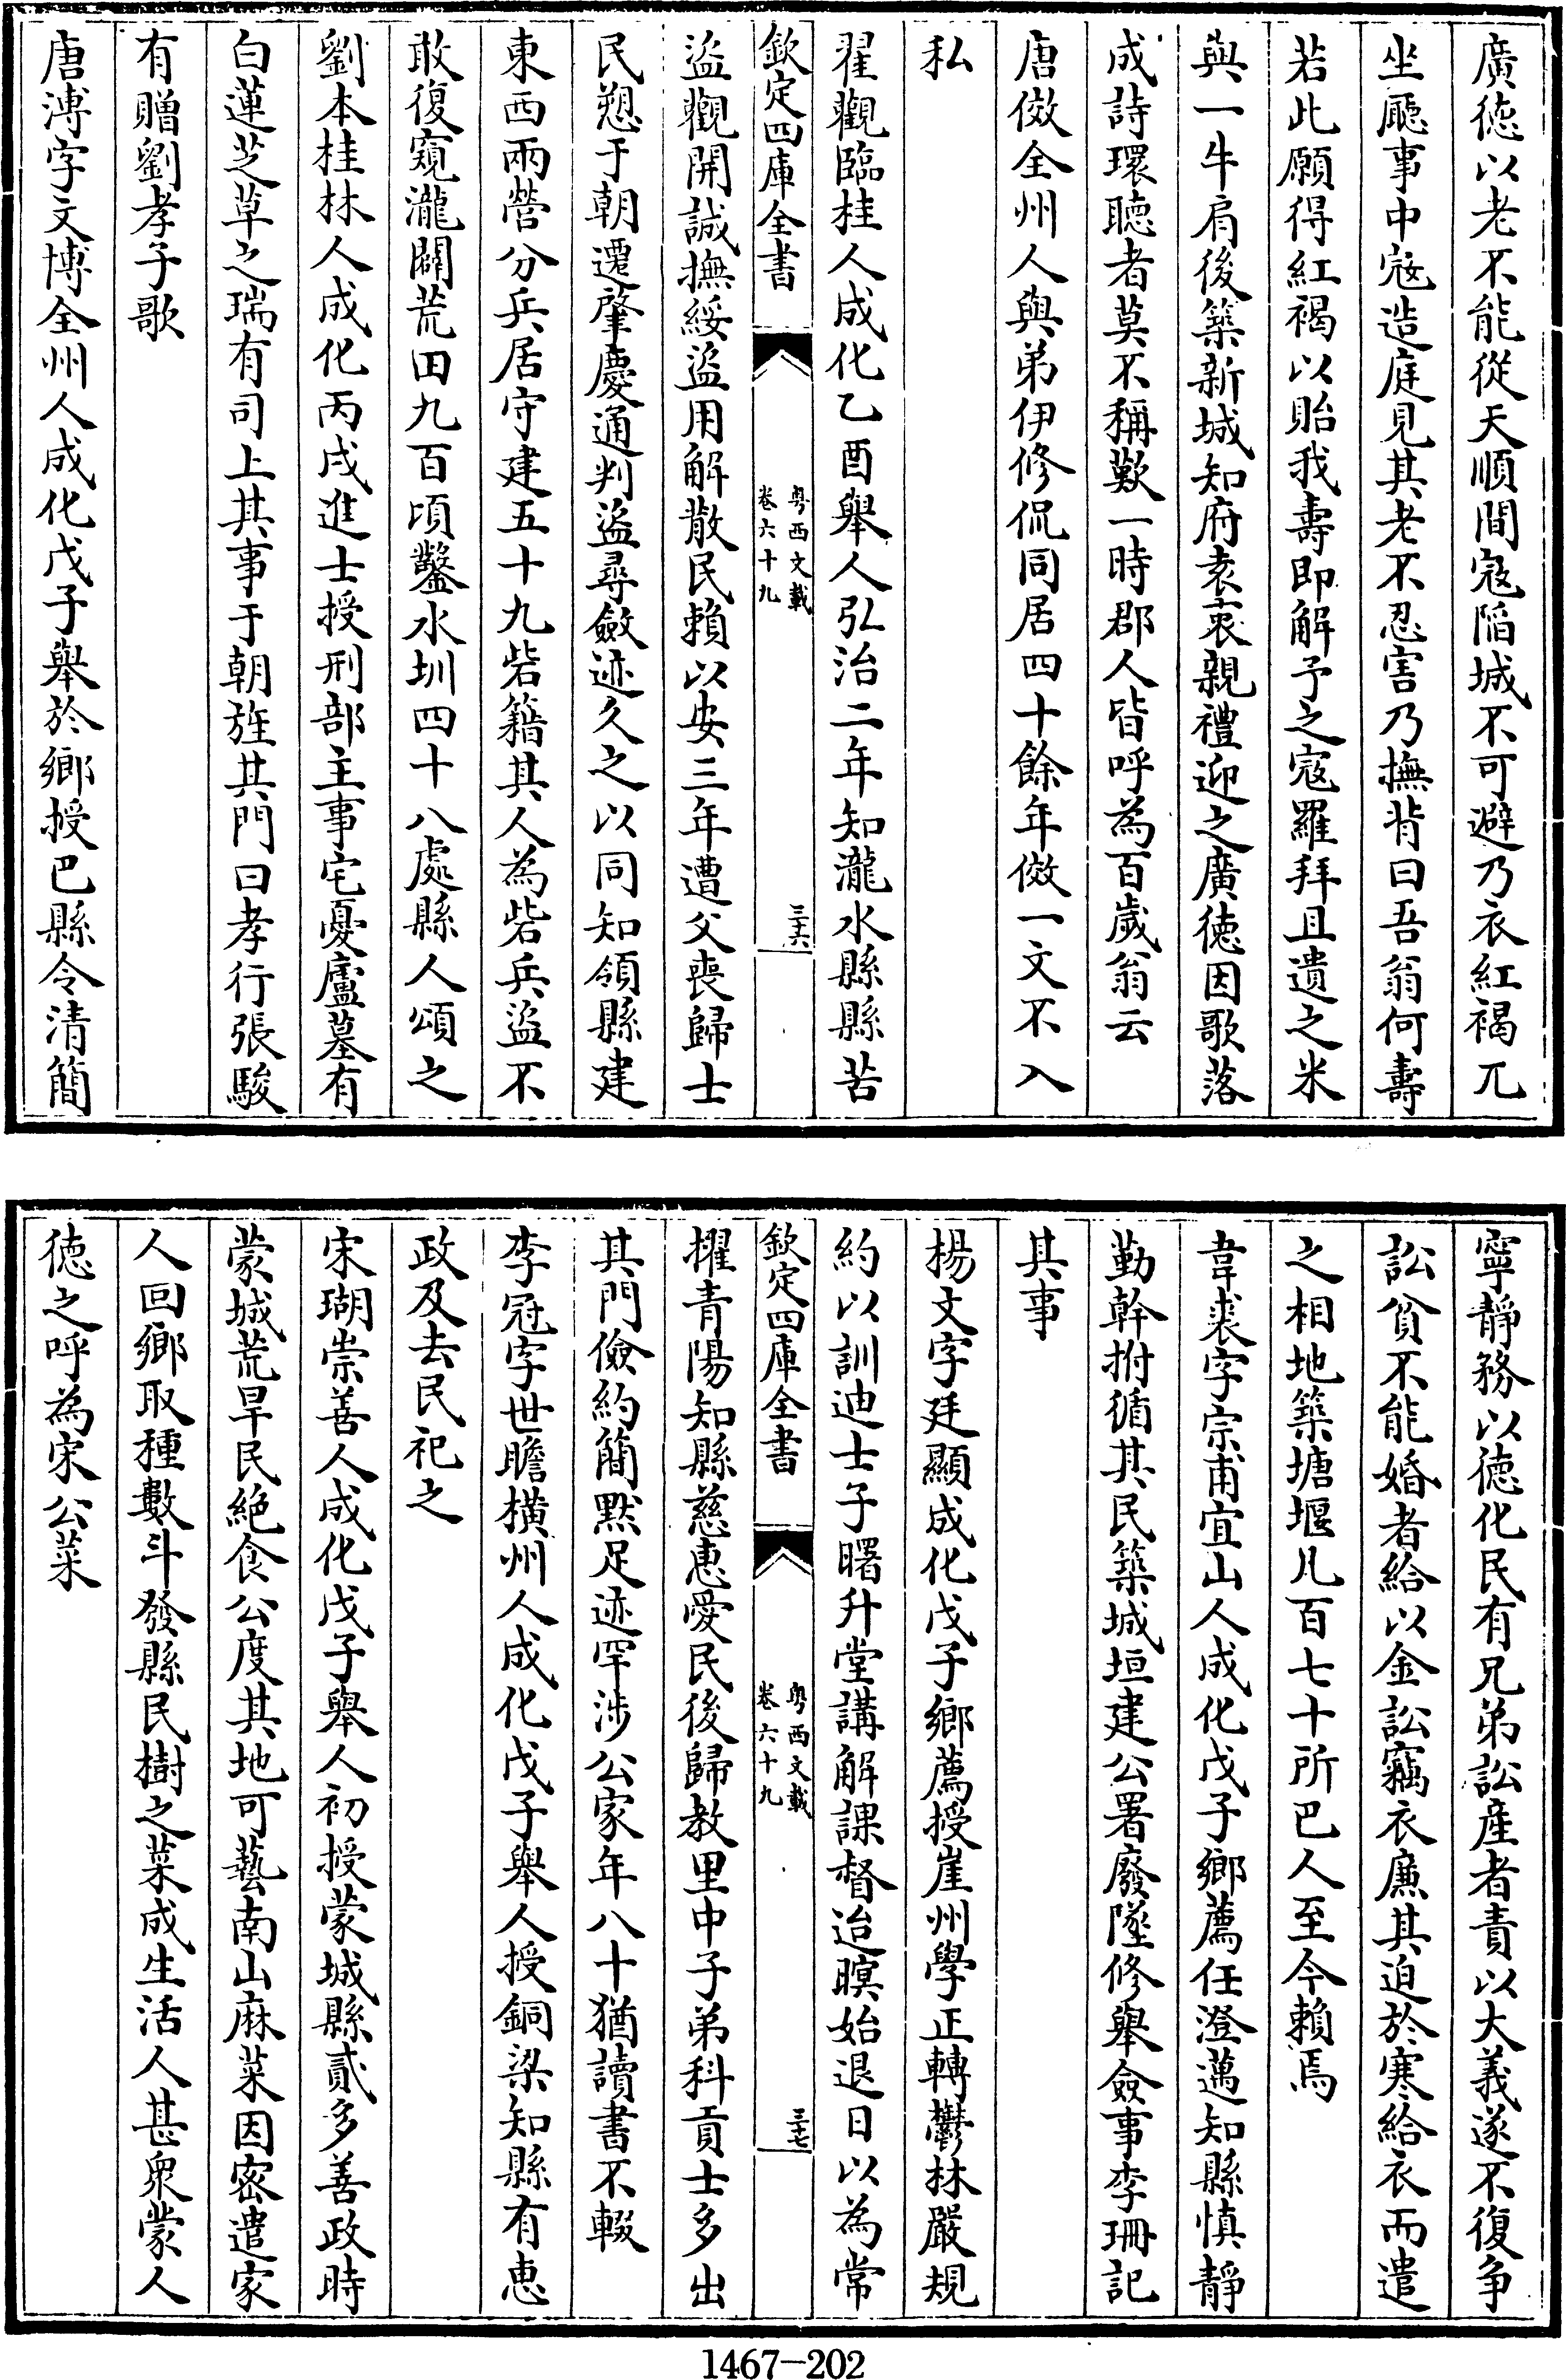 廣徳以老不能從天順間宼陷城不可避乃衣紅褐兀
坐廳事中宼造庭見其老不忍害乃撫背曰吾翁何壽
若此願得紅褐以貽我壽即解予之宼羅拜且遺之米
與一牛肩後築新城知府袁衷親禮迎之廣徳因歌落
成詩環聽者莫不稱歎一時郡人皆呼為百歲翁云
唐倣全州人與弟伊修侃同居四十餘年倣一文不入
私
翟觀臨桂人成化乙酉舉人弘治二年知瀧水縣縣苦
欽定四庫全書
粤西文載
卷六十九
三十六
盜觀開誠撫綏盜用解散民賴以安三年遭父喪歸士
民愬于朝遷肇慶通判盜尋斂迹久之以同知領縣建
東西兩營分兵居守建五十九砦籍其人為砦兵盜不
敢復窺瀧闢荒田九百頃鑿水圳四十八處縣人頌之
劉本桂林人成化丙戌進士授刑部主事宅憂廬墓有
白蓮芝草之瑞有司上其事于朝旌其門曰孝行張駿
有贈劉孝子歌
唐溥字文博全州人成化戊子舉於鄉授巴縣令清簡
寧靜務以徳化民有兄弟訟産者責以大義遂不復争
訟貧不能婚者給以金訟竊衣廉其迫於寒給衣而遣
之相地築塘堰凡百七十所巴人至今賴焉
韋裘字宗甫宜山人成化戊子鄉薦任澄邁知縣慎靜
勤幹拊循其民築城垣建公署廢墜修舉僉事李珊記
其事
楊文字廷顯成化戊子鄉薦授崖州學正轉鬱林嚴規
約以訓迪士子曙升堂講解課督迨暝始退日以為常
欽定四庫全書
粤西文載
卷六十九
三十七
擢青陽知縣慈惠愛民後歸教里中子弟科貢士多出
其門儉約簡默足迹罕涉公家年八十猶讀書不輟
李冠字世瞻横州人成化戊子舉人授銅梁知縣有惠
政及去民祀之
宋瑚崇善人成化戊子舉人初授蒙城縣貳多善政時
蒙城荒旱民絶食公度其地可藝南山麻菜因密遣家
人回鄉取種數斗發縣民樹之菜成生活人甚衆蒙人
徳之呼為宋公菜
1467-202